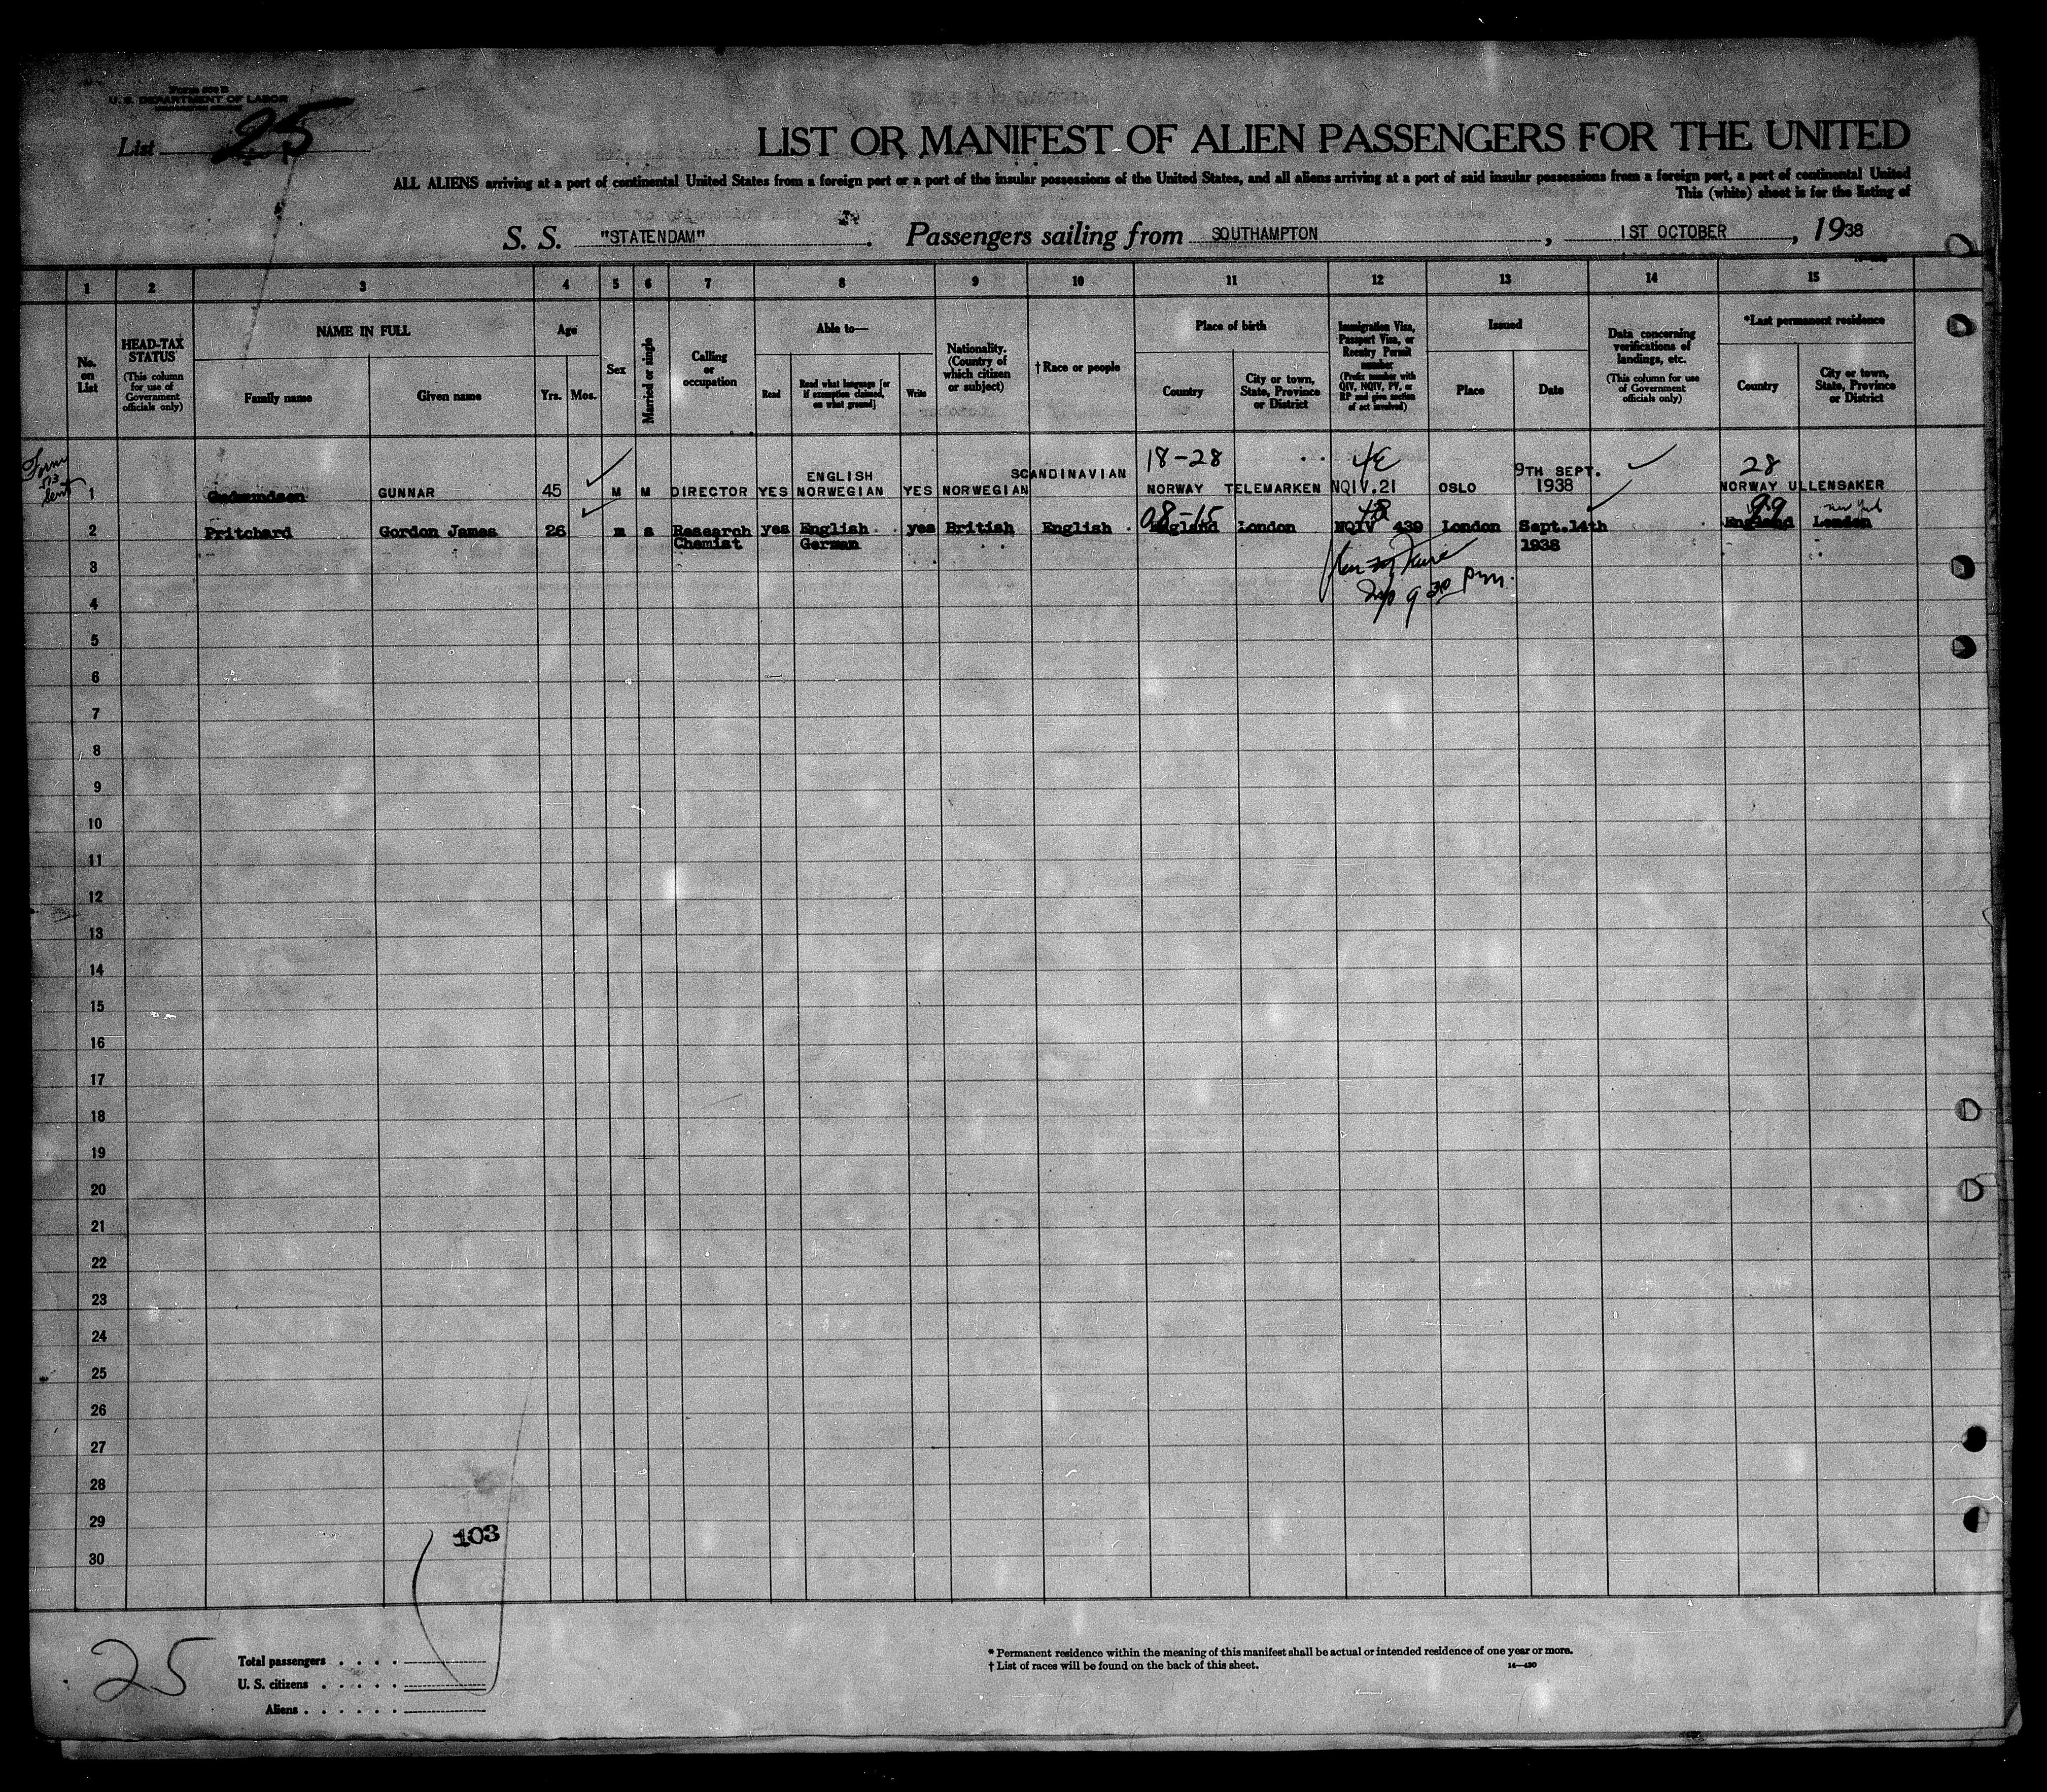 Form 500 B
U. S. DEPARTMENT OF LABOR
List 25
LIST OR MANIFEST OF ALIEN PASSENGERS FOR THE UNITED
ALL ALIENS arriving at a port of continental United States from a foreign port or a port of the insular possessions of the United States, and all aliens arriving at a port of said insular possessions from a foreign port, a port of continental United
This (white) sheet is for the listing of
S. S. "STATENDAM". Passengers sailing from SOUTHAMPTON, 1ST OCTOBER, 1938
1 2 3 4 5 6 7 8 9 10 11 12 13 14 15
No. on List
HEAD-TAX STATUS (This column for use of Government officials only)
NAME IN FULL
Family name Given name
Age
Yrs. Mos.
Sex
Married or single
Calling or occupation
Able to—
Read Read what language [or if exemption claimed, on what ground] Write
Nationality. (Country of which citizen or subject)
†Race or people
Place of birth
Country City or town, State, Province or District
Immigration Visa, Passport Visa, or Reentry Permit number (Prefix number with QIV, NQIV, PV, or RP and give section of act involved)
Issued
Place Date
Data concerning verifications of landings, etc. (This column for use of Government officials only)
*Last permanent residence
Country City or town, State, Province or District
Form 573 Sent
18-28 4E 28
1 Gudmundsen GUNNAR 45 M M DIRECTOR YES ENGLISH NORWEGIAN YES NORWEGIAN SCANDINAVIAN NORWAY TELEMARKEN NQIV.21 OSLO 9TH SEPT. 1938 NORWAY ULLENSAKER
08-15 99 New York
2 Pritchard Gordon James 26 m s Research Chemist yes English German yes British English England London NQIV 439 London Sept.14th 1938 England London
9 30 pm.
3
4
5
6
7
8
9
10
11
12
13
14
15
16
17
18
19
20
21
22
23
24
25
26
27
28
29
30
103
25
Total passengers . . . .
U. S. citizens . . . . .
Aliens . . . . . .
* Permanent residence within the meaning of this manifest shall be actual or intended residence of one year or more.
† List of races will be found on the back of this sheet. 14—430